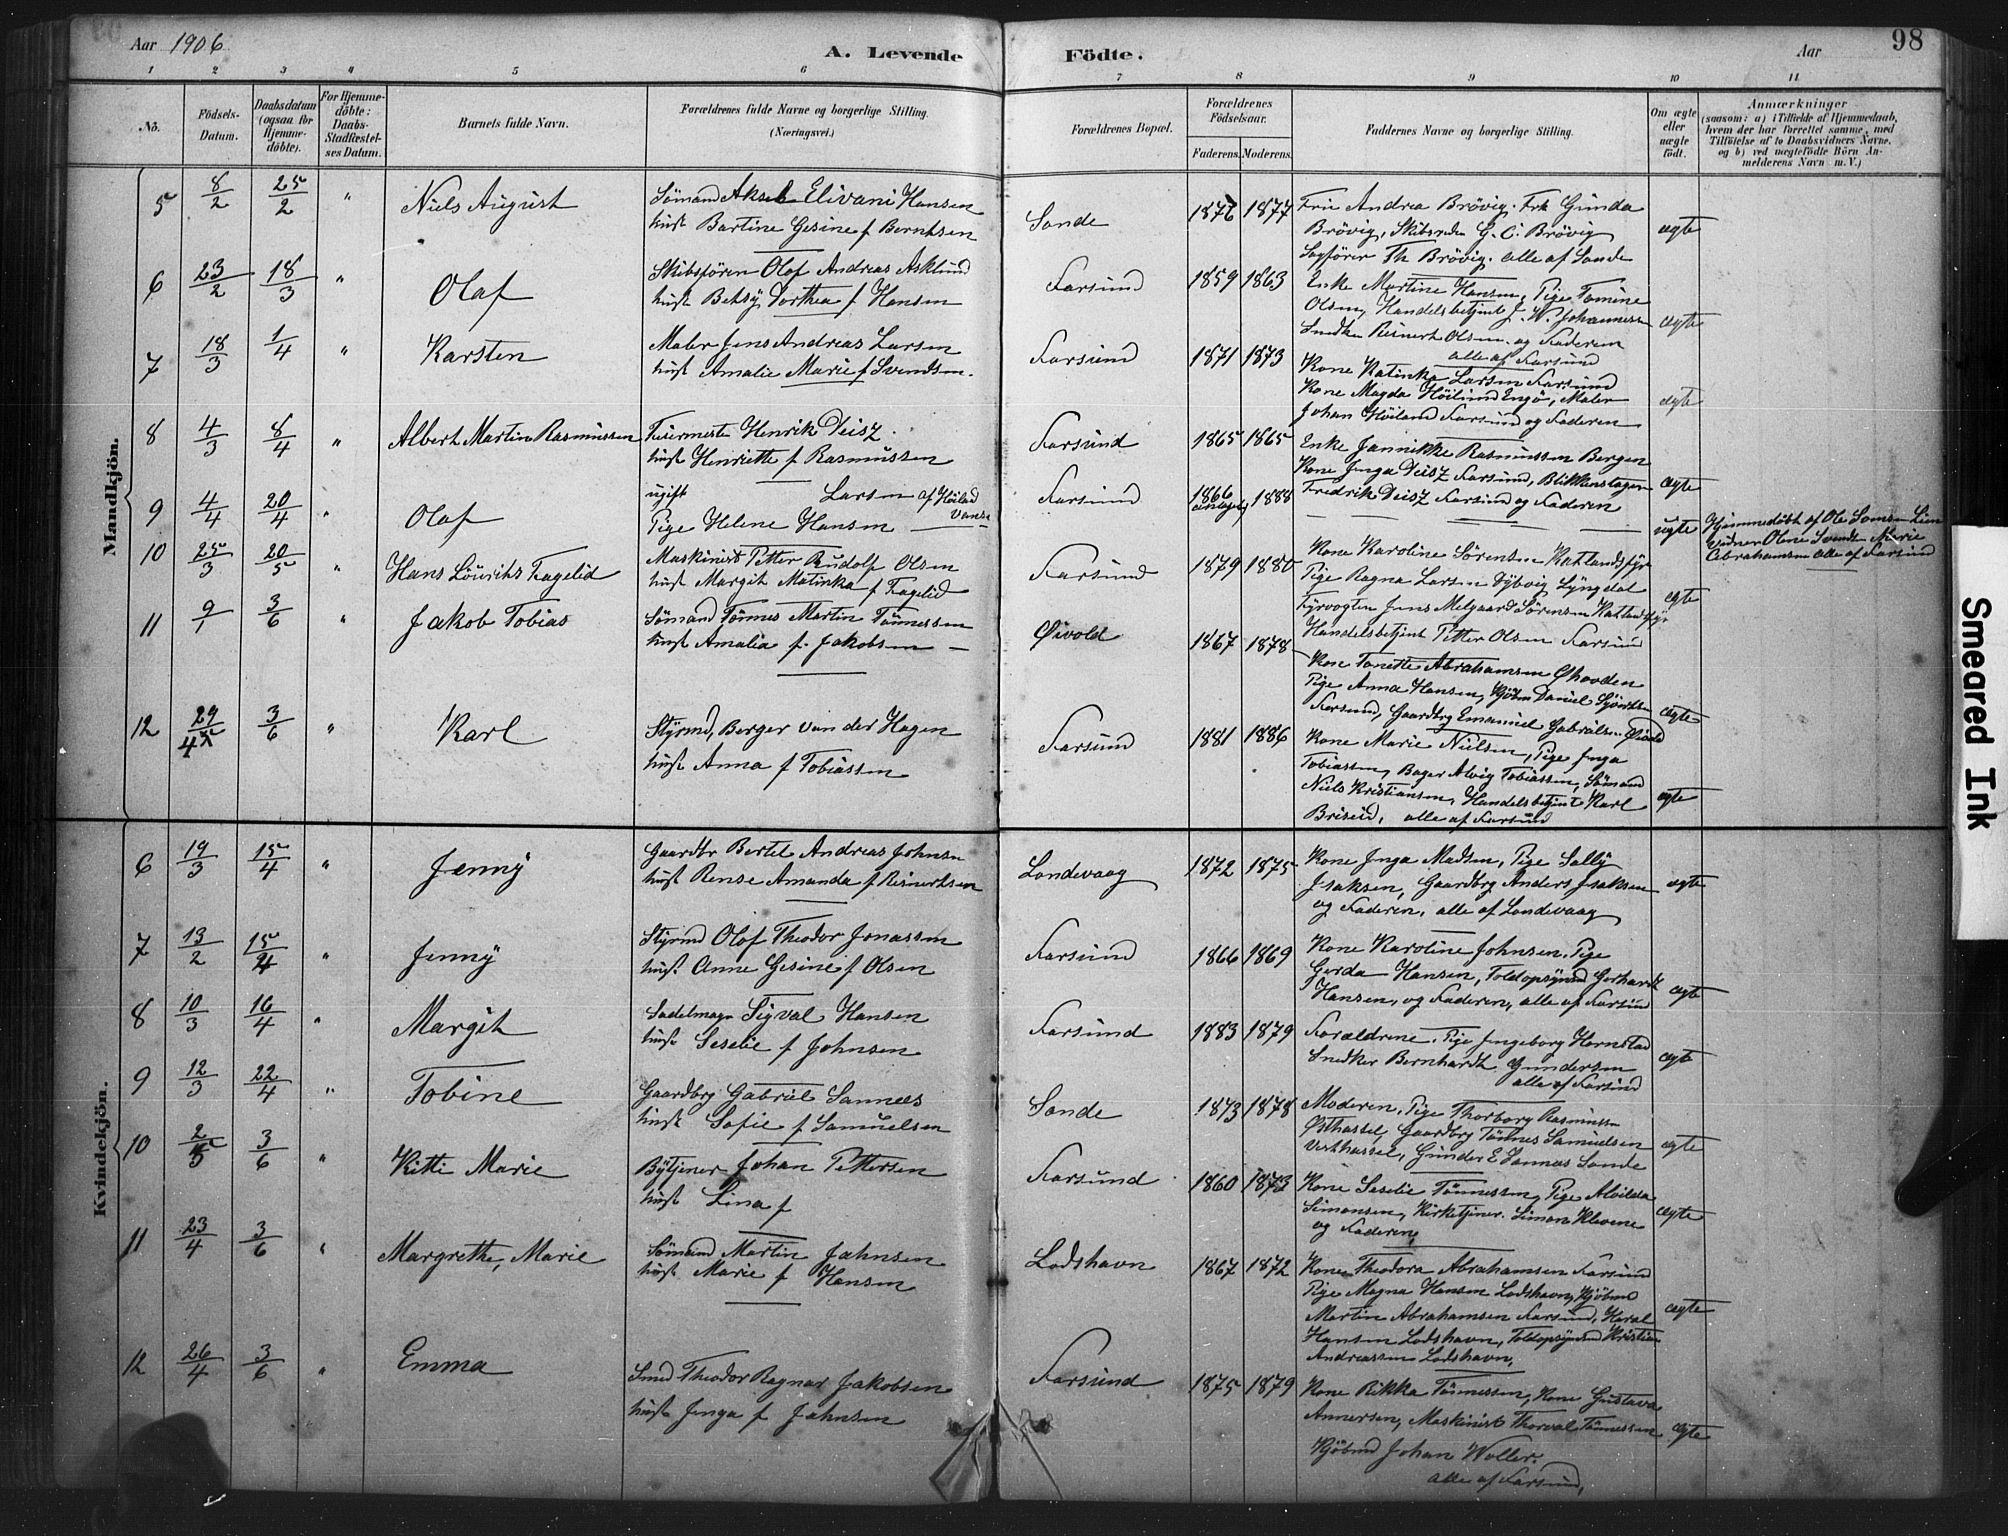 Aar 1906
A. Levende Födte.
Aar
98
1 2 3 4 5 6 7 8 9 10 11
No.
Födsels-Datum.
Daabsdatum (ogsaa for Hjemme-döbte).
For Hjemme-döbte: Daabs-Stadfæstelses Datum.
Barnets fulde Navn.
Forældrenes fulde Navne og borgerlige Stilling. (Næringsvei.)
Forældrenes Bopæl.
Forældrenes Födselsaar.
Faderens. Moderens.
Faddernes Navne og borgerlige Stilling.
Om ægte eller uægte födt.
Anmærkninger (saasom: a) i Tilfælde af Hjemmedaab, hvem der har forrettet samme, med Tilföielse af to Daabsvidners Navne, og b) ved uægtefödte Börn Anmelderens Navn m. V.)
Mandkjön.
5 8/2 25/2 " Niels August
Sömand Aksel Elivani Hansen
hust Bartine Gesine f Berntsen
Sande 1876 1877
Fru Andrea Brövig. Frk Gunda
Brövig, Skibsreder G. C. Brövig
Sagförer Th Brövig. alle af Sande
ægte
6 23/2 18/3 " Olaf
Skibsförer Olaf Andreas Asklund
hust Betsy Dorthea f Hansen
Farsund 1859 1863
Enke Martine Hansen, Pige Tomine
Olsen, Handelsbetjent J. W. Johannessen
Snedker Reinert Olsen og Faderen
alle af Farsund
ægte
7 18/3 1/4 " Karsten
Maler Jens Andreas Larsen
hust Amalie Marie f Svendsen.
Farsund 1871 1873
Kone Katinka Larsen Farsund
Kone Magda Höilund Engö, Maler
Johan Höiland Farsund og Faderen
ægte
8 4/3 8/4 " Albert Martin Rasmussen
Henrik Deisz.
hust Henriette f Rasmussen
Farsund 1865 1865
Enke Jannikke Rasmussen Bergen
Kone Inga Deisz Farsund, Blikkenslager
Fredrik Deisz Farsund og Faderen
ægte
9 4/4 20/4 " Olaf
ugift Larsen af Höiland Vanse
Pige Helene Hansen
Farsund 1866 1888
uægte
Hjemmedöbt af Ole Lien
vidner Oline Svendsen Marie
Abrahamsen alle af Farsund
10 25/3 20/5 " Hans Louritz Fagelid
Maskinist Petter Rudolf Olsen
hust Margit Matinka f Fagelid
Farsund 1879 1880
Kone Karoline Sörensen Katlandsfyr
Pige Ragna Larsen Dybvig Lyngdal
Fyrvogter Jens Melgaard Sörensen Katlandsfyr
Handelsbetjent Petter Olsen Farsund
ægte
11 9/1 3/6 " Jakob Tobias
Sömand Tönnes Martin Tönnessen
hust Amalia f. Jakobsen
Öivold 1867 1878
Kone Tonette Abrahamsen
Pige Anna Hansen, Kjöbm Daniel
Farsund, Gaardbrg Emanuel Gabrielsen Öivold
ægte
12 29/4 3/6 " Karl
Styrmd, Berger van der Hagen
hust Anna f Tobiassen
Farsund 1881 1886
Kone Marie Nielsen, Pige Inga
Tobiassen, Bager Alvig Tobiassen, Sömand
Niels Kristiansen, Handelsbetjent Karl
Briseid, alle af Farsund
ægte
Kvindekjön.
6 19/3 15/4 " Jenny
Gaardbr Bertel Andreas Johnsen
hust Rense Amanda f Reinertsen
Londevaag 1872 1875
Kone Inga Madsen, Pige Sally
Isaksen, Gaardbrg Anders Isaksen
og Faderen, alle af Londevaag
ægte
7 13/2 15/4 " Jenny
Styrmd Olaf Theodor Jonassen
hust. Anne Gesine f Olsen
Farsund 1866 1869
Kone Karoline Johnsen, Pige
Gerda Hansen, Toldopsynsmd Gerhardt
Hansen, og Faderen, alle af Farsund
ægte
8 10/3 16/4 " Margit
Sadelmager Sigval Hansen
hust Seselie f Johnsen
Farsund 1883 1879
Forældrene. Pige Ingeborg Hornstad
Snedker Bernhardt Gundersen
alle af Farsund
ægte
9 12/3 22/4 " Tobine
Gaardbrg Gabriel Sannæs
hust Sofie f Samuelsen
Sande 1873 1878
Moderen, Pige Thorborg Rasmussen
Östhassel, Gaardbrg Tönnes Samuelsen
Vesthassel, Gunder E Sannæs Sande
ægte
10 2/5 3/6 " Kitti Marie
Bytjener Johan Pettersen
hust Lina f
Farsund 1860 1873
Kone Seselie Tönnessen, Pige Alvilda
Simonsen, Kirketjener Simon Klevene
og Faderen,
ægte
11 23/4 3/6 " Margrethe, Marie
Sömand Martin Jahnsen
hust Marie f Hansen
Lodshavn 1867 1872
Kone Theodora Abrahamsen Farsund
Pige Magna Hansen Lodshavn, Kjöbmd
Martin Abrahamsen Farsund, Haral
Hansen Lodshavn, Toldopsynsmd Kristian
Andreassen Lodshavn,
ægte
12 26/4 3/6 " Emma
Smed Theodor Ragnar Jakobsen
hust Inga f Jahnsen
Farsund 1875 1879
Kone Rikka Tönnessen, Kone Gustava
Annersen, Maskinist Thorval Tönnessen
Kjöbmd Johan Woller.
alle af Farsund,
ægte
Smeared Ink